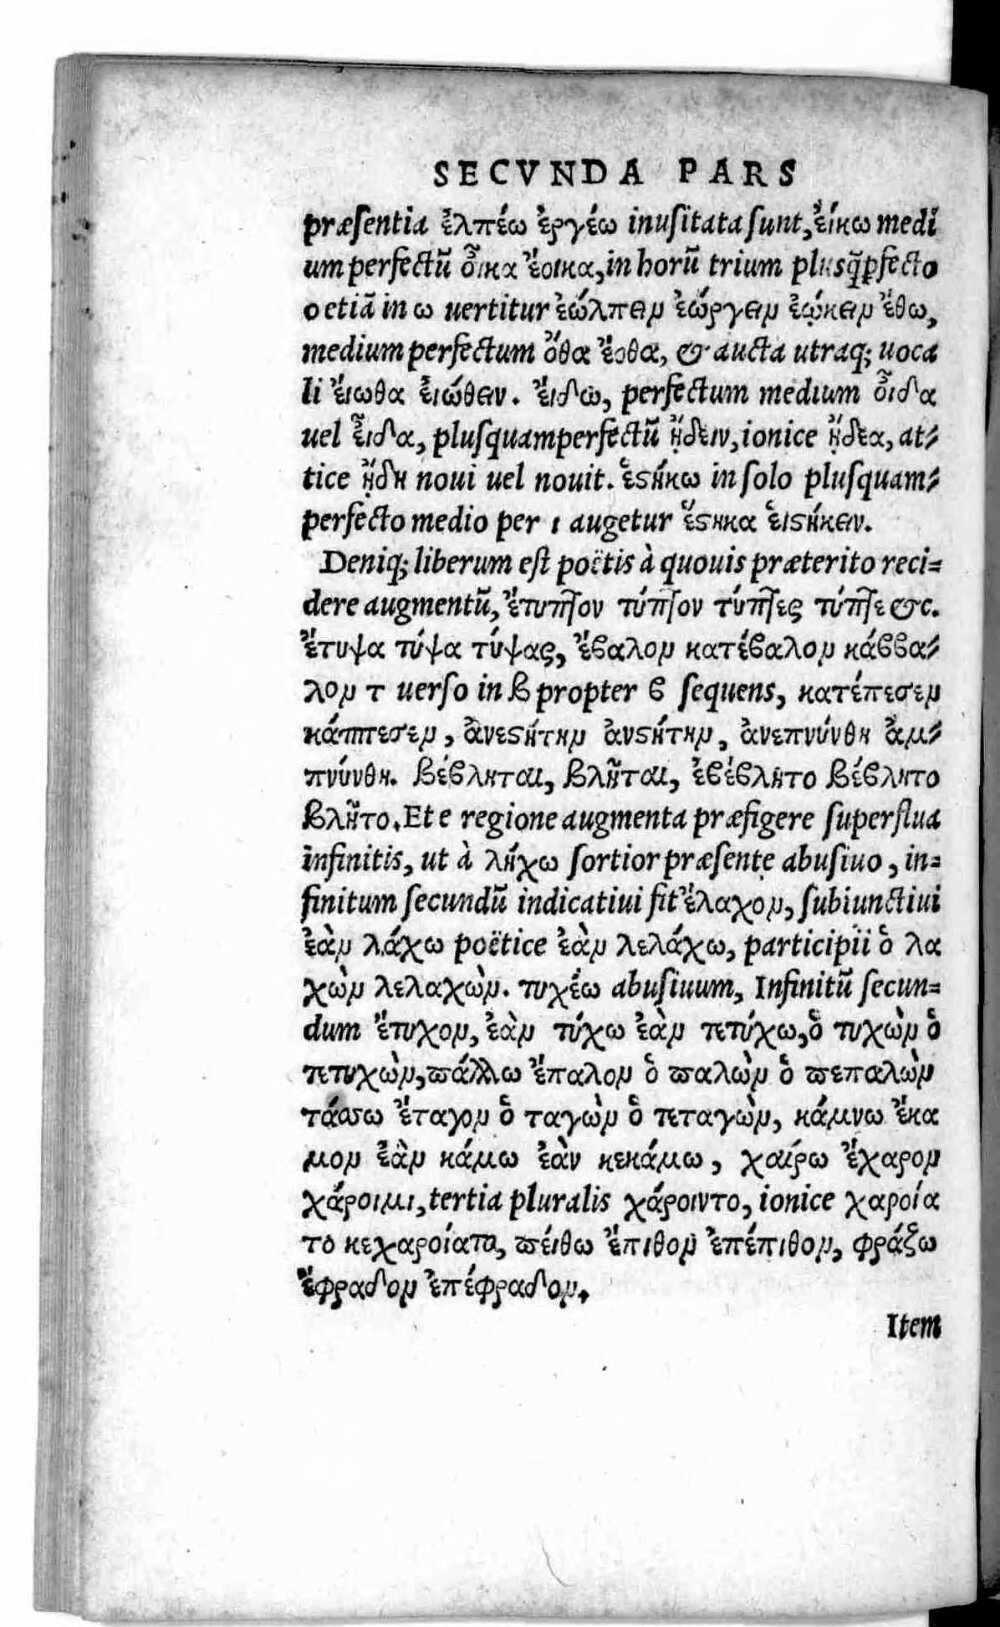 SECVNDA PARS
præsentia ἐλπέω ἐργέω inusitata sunt, ἐίκω medi
um perfectũ οἶκα ἔοικα, in horũ trium plusq̃ꝑfecto
o etiã in ω uertitur ἐώλπειν ἐώργειν ἐῴκειν ἔθω,
medium perfectum ὄθα ἔοθα, & aucta utraq; uoca
li ἔιωθα ἐιώθειν. ἔιδω, perfectum medium οἶδα
uel εἶδα, plusquamperfectũ ᾔδειν, ionice ᾔδεα, at-
tice ᾔδη noui uel nouit. ἑστήκω in solo plusquam-
perfecto medio per ι augetur ἕστηκα ἑιστήκειν.
Deniq; liberum est poëtis à quouis præterito reci-
dere augmentũ, ἔτυπτον τύπτον τύπτες τύπτε &c.
ἔτυψα τύψα τύψας, ἔβαλον κατέβαλον κάββα-
λον τ uerso in β propter β sequens, κατέπεσεν
κάππεσεν, ἀνεστήτην ἀνστήτην, ἀνεπνύνθη ἀμ-
πνύνθη. βέβληται, βλῆται, ἐβέβλητο βέβλητο
βλῆτο. Et e regione augmenta præfigere superflua
infinitis, ut à λήχω sortior præsente abusiuo, in-
finitum secundũ indicatiui fit ἔλαχον, subiunctiui
ἐὰν λάχω poëtice ἐὰν λελάχω, participii ὁ λα
χὼν λελαχὼν. τυχέω abusiuum, Infinitũ secun-
dum ἔτυχον, ἐὰν τύχω ἐὰν τετύχω, ὁ τυχὼν ὁ
τετυχὼν, πάλλω ἔπαλον ὁ παλὼν ὁ πεπαλὼν
τάσσω ἔταγον ὁ ταγὼν ὁ τεταγὼν, κάμνω ἔκα
μον ἐὰν κάμω ἐὰν κεκάμω, χαίρω ἔχαρον
χάροιμι, tertia pluralis χάροιντο, ionice χαροία
το κεχαροίατο, πείθω ἔπιθον ἐπέπιθον, φράζω
ἔφραδον ἐπέφραδον.
Item